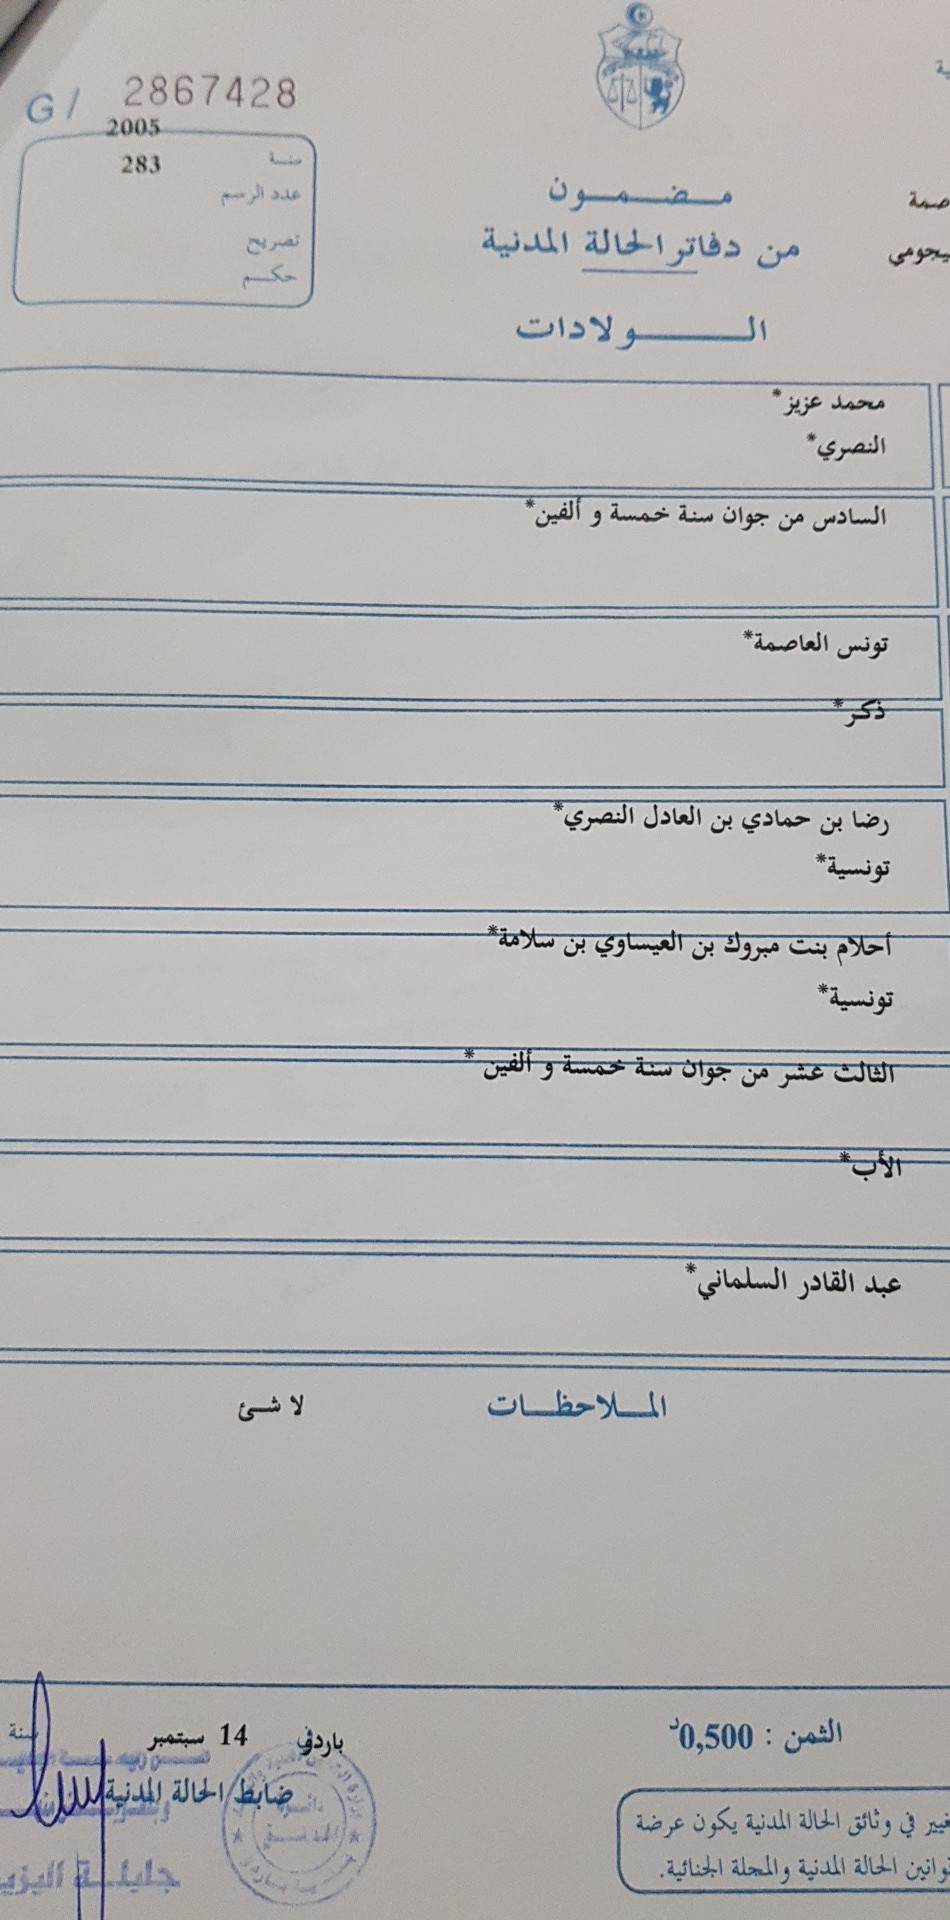 G/ 2867428
2005
سنة
283
عدد الرسم
تصريح
حكم
مضمون
من دفاتر الحالة المدنية
الولادات
محمد عزيز*
النصري*
السادس من جوان سنة خمسة و ألفين*
تونس العاصمة*
ذكر*
رضا بن حمادي بن العادل النصري*
تونسية*
أحلام بنت مبروك بن العيساوي بن سلامة*
تونسية*
الثالث عشر من جوان سنة خمسة و ألفين *
الأب*
عبد القادر السلماني*
الملاحظات
لا شئ
الثمن : 0,500د
باردو في 14 سبتمبر سنة
ضابط الحالة المدنية
جليلة
في وثائق الحالة المدنية يكون عرضة
الحالة المدنية والمجلة الجنائية.